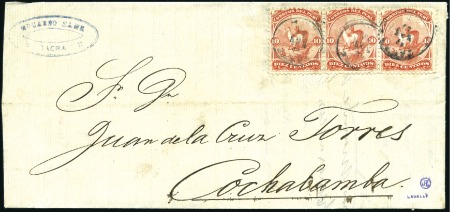 TACNA
10 10 10 10 10 10
DIEZ CENTAVOS DIEZ CENTAVOS DIEZ CENTAVOS
Sr. D.
Juan de la Cruz Torres
Cochabamba.